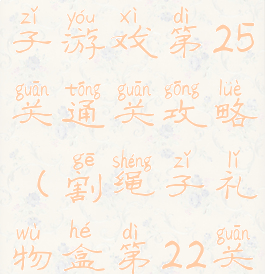 zǐ yóu xì dì
子游戏第25
guān tōng guān gōng lüè
关通关攻略
gē shéng zǐ lǐ
（割绳子礼
wù hé dì guān
物盒第22关